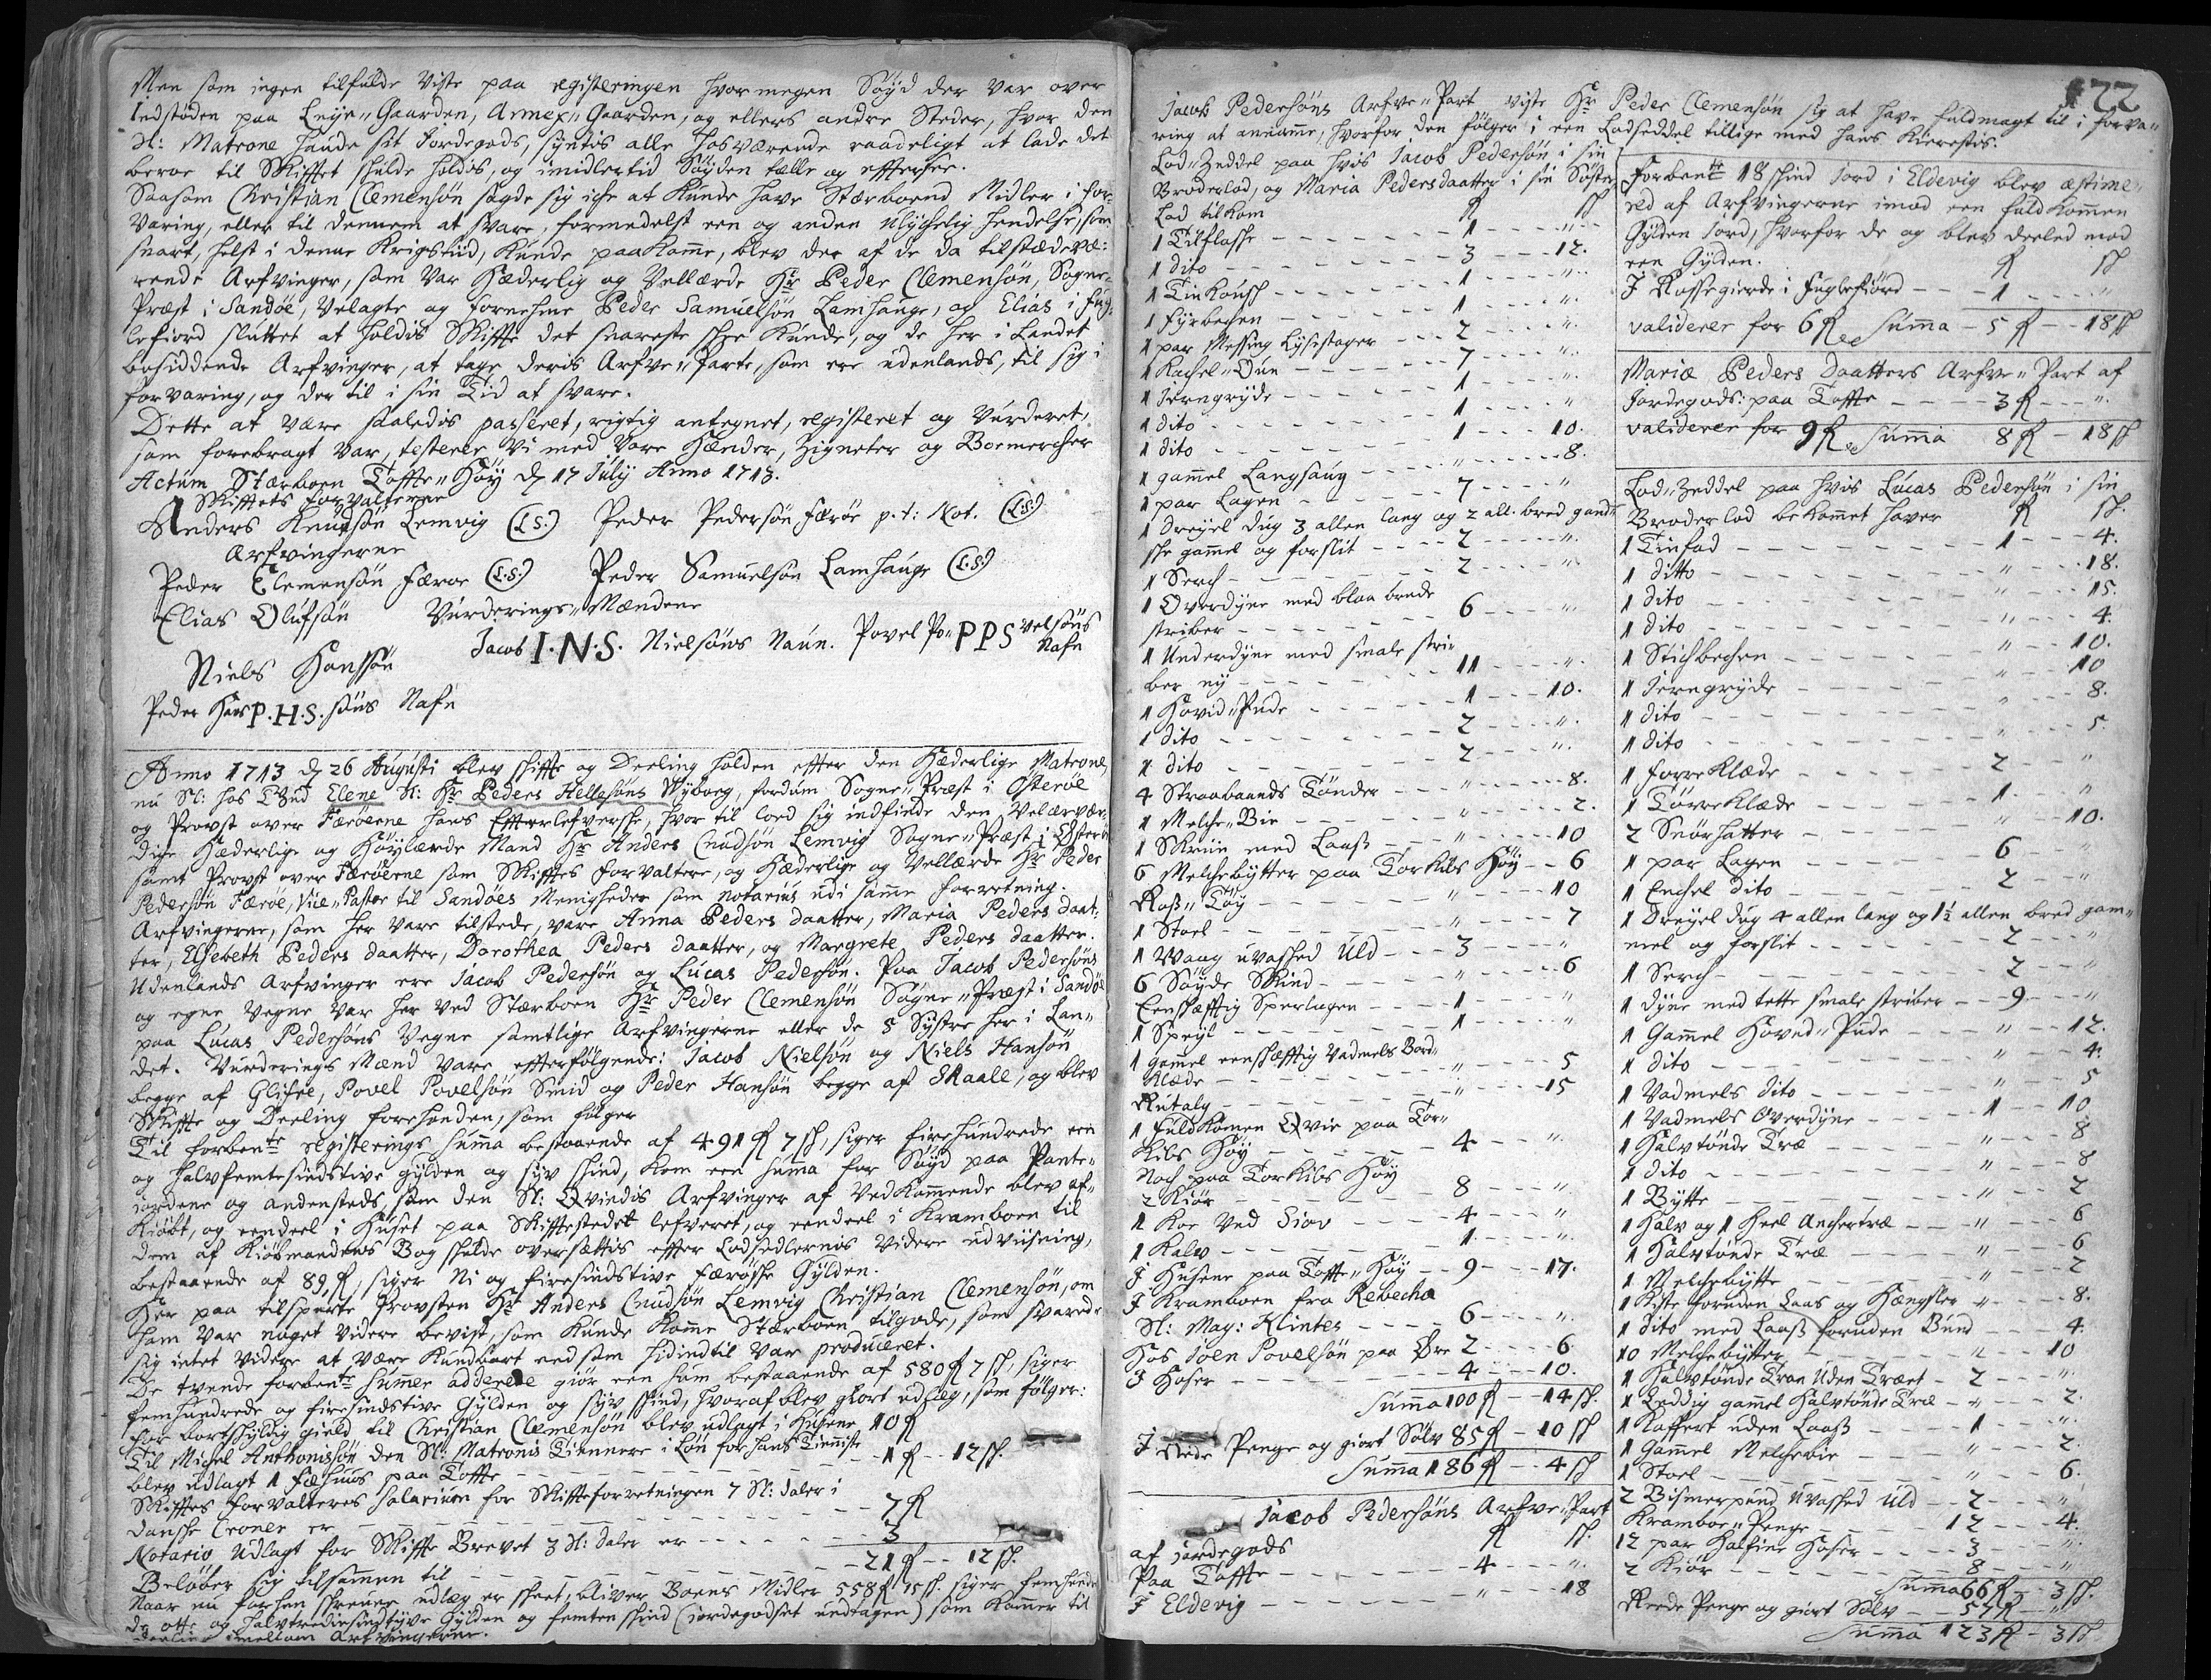 Men som ingen tilfulde viste paa registeringen hvor megen Søyd der var over
Indstøden paa Leye-Gaarden, Annex-Gaarden, og ellers andre Steder, hvor den
Sl: Matrone hafde sit Jordegods, syntes alle hosværende raadeligt at lade det
beroe til Skiftet skulde holdis, og imidlertid Søyden tælle og effterse.
Saasom Christian Clemensøn sagde sig icke at kunde have Stærboend Midler i for-
varing, eller til dennem at svare, formedelst een og anden ulyckelig hendelse, som
snart, helst i denne Krigstiid, kunde paakomme, blev der af de da tilstædevæ-
rende Arfvinger, som var Hæderlig og Vellærde Hr Peder Clemensøn, Sogne-
Præst i Sandøe, Velagte og fornehme Peder Samuelsøn Lamhauge, og Elias i Fug-
lefiord sluttet at holdis Skiffte det snareste skee kunde, og de her i Landet
besiddende Arfvinger, at tage deris Arfve-Parte, som ere udenlands, til sig i
forvaring, og der til i sin Tid at svare.
Dette at være saaledis passeret, rigtig antegnet, registeret og Vurderet,
som forebragt var, testerer Vi med vore Hænder, Zigneter og Boemercher
Actum Stærboen Toffte-Høy d 17 July Anno 1713.
Skifftets forvaltere
Anders Knudsøn Lemvig (L.S.) Peder Pedersøn Færøe p.t: Not. (L.S.)
Arfvingerne
Peder Clemensøn Færoe (L.S.) Peder Samuelsøn Lamhauge (L.S.)
Elias Olufsøn Vurderings-Mændene
Jacob I.N.S. Nielsøns Naun. Povel Po- PPS velsøns
Nafn
Niels Hanssøn
Peder Hans P.H.S. søns Nafn
Anno 1713 d 26 Augusti blev skiffte og Deeling holden effter den Hæderlige Matrone,
nu Sl: hos Gud Elene Sl: Hr Peders Hellesøns Wyborg, fordum Sogne-Præst i Østerøe
og Provst over Færøerne hans Effterlefverske, hvor til loed sig indfinde den Velærvær-
dige Hæderlige og Høylærde Mand Hr Anders Cnudsøn Lemvig Sogne-Præst i Østerøe
samt Provst over Færøerne som Skifftes forvaltere, og Hæderlige og Vellærde Hr Peder
Pedersøn Færøe, Vice-Pastor til Sandøes Menigheder som Notarius udi samme forretning.
Arfvingerne, som her vare tilstede, vare Anna Peders daatter, Maria Peders daat-
ter, Elsebeth Peders daatter, Dorothea Peders daatter, og Margrete Peders daatter.
Udenlands Arfvinger ere Jacob Pedersøn og Lucas Pedersøn. Paa Jacob Pedersøns
og egne vegne var her ved Stærboen Hr Peder Clemensøn Sogne-Præst i Sandøe
paa Lucas Pedersøns Vegne samtlige Arfvingerne eller de 5 Systre her i Lan-
det. Vurderings Mænd vare effterfølgende: Jacob Nielsøn og Niels Hansøn
begge af Glifre, Povel Povelsøn Smid og Peder Hansøn begge af Skaale, og blev
Skiffte og Deeling forehanden, som følger
Til forbente registerings Summa bestaaende af 491 fl 7 sk, siger firehundrede een
og halvfemtesindstive gylden og syv skind, kom een summa for Søyd paa Pante-
iordene og andensteds, som den Sl: Qvindis Arfvinger af Vedkommende blev af-
kiøbt, og eendeel i Huset paa Skifftestedet lefveret, og eendeel i Kramboen til
dem af Kiøbmandens Bog skulde oversættis effter Lodsedlernis videre udviisning,
bestaaende af 89 fl, siger Ni og firesindstive færøske Gylden.
Her paa tilspurte Provsten Hr Anders Cnudsøn Lemvig Christian Clemensøn, om
ham var noget videre bevist, som kunde komme Stærboen tilgode, som svarede
sig intet videre at være kundbart end som hidindtil var produceret.
De tvende forbente Summer adderede giør een sum bestaaende af 580 fl 7 sk, siger
femhundrede og firesindstive Gylden og syv skind, hvoraf blev giort udlæg, som følger:
For bortskyldig gield, til Christian Clemensøn blev udlagt i Husene 10 fl
Til Michel Anthonisøn den Sl: Matronis Tiennere i Løn for hans Tienniste
blev udlagt 1 Fæhuus paa Toffte - - - 1 fl - 12 sk.
Skifftes forvalteres Salarium for Skiffteforretningen 7 Sl: daler i
danske Croner er - - - 7 fl
Notario udlagt for Skiffte Brevet 3 Sl: daler er - - - 3
Beløber sig tilsammen til - - - 21 fl - 12 sk.
Naar nu forhen skrevne udlæg er skeet, bliver Boens Midler 558 fl 15 sk. siger femhundr.
de otte og halvtrediesindstyve Gylden og femten skind (iordegodset undtagen) som kommer til
deeling imellem Arfvingerne.
122
Jacob Pedersøns Arfve-Part viste Hr Peder Clemensøn sig at have fuldmagt til i forva-
ring at annamme, hvorfor den følger i een Lodseddel tillige med hans Kierestis.
Lod-Zeddel paa hvis Jacob Pedersøn i sin
Broderlod, og Maria Pedersdaatter i sin Søster
Lod tilkom fl sk
1 Tilflaske - - - 1 - "
1 dito - - - 3 - 12.
1 Tinkousk - - - 1 - "
1 Fyrbechen - - - 1 - "
1 par Messing Lysestager - - - 2 - "
1 Kachel-Oun - - - 7 - "
1 Jerngryde - - - 1 - "
1 dito - - - 1 - "
1 dito - - - 1 - 10.
1 gammel Langsaug - - - " - 8.
1 par Lagen - - - 7 - "
1 Dreyel dug 3 allen lang og 2 all. bred gand-
ske gammel og forslit - - - 2 - "
1 Serch - - - 2 - "
1 Overdyne med blaa brede
striber - - - 6 - "
1 Underdyne med smale stri-
ber ny - - - 11 - "
1 Hovid-Pude - - - 1 - 10.
1 dito - - - 2 - "
1 dito - - - 2 - "
4 Straabaands Tønder - - - " - 8.
1 Melche-Bie - - - " - 2.
1 Skriin med Laas - - - " - 10
6 Melchebytter paa Torkils Høy - - 6
Ross-Tøy - - - " - 10
1 Stoel - - - " - 7
1 Waag uvasked Uld - - - 3 - "
6 Søyde Skind - - - " - 6
Eenskæfftig Sperlagen - - - 1 - "
1 Speyl - - - 1 - "
1 gammel eenskæfftig Vadmels Bord-
klæde - - - " - 5
Rutaly - - - " - 15
1 fuldkomen Qvie paa Tor-
kils Høy - - - 4 - "
Noch paa Torkils Høy
2 Kiør - - - 8 - "
1 Koe ved Siov - - - 4 - "
1 Kalv - - - 1 - "
J Husene paa Toffte-Høy - - 9 - 17.
J Kramboen fra Rebecha
Sl: Mag: Klintes - - - 6 - "
Hos Joen Povelsøn paa Øre 2 - 6
J Hoser - - - 4 - 10.
Summa 100 fl - 14 sk.
J Rede Penge og giort Sølv 85 fl - 10 sk
Summa 186 fl - 4 sk
Jacob Pedersøns Arfve-Part
af jordegods fl sk.
Paa Toffte - - - 4 - "
J Eldevig - - - " - 18
Forbente 18 skind Jord i Eldevig blev æstime-
red af Arfvingerne imod een fuldkommen
Gylden Jord, hvorfor de og blev deeled mod
een Gylden. fl sk
J Rossegierde i Fuglefiørd - - - 1 - "
validerer for 6 Rd Summa - 5 fl - 18 sk
Mariæ Peders daatters Arfve-Part af
Jordegods: paa Toffte - - - 3 fl - "
validerer for 9 Rd Summa 8 fl - 18 sk
Lod-Zeddel paa hvis Lucas Pedersøn i sin
Broderlod bekommet haver fl sk.
1 Tinfad - - - 1 - 4.
1 ditto - - - " - 18.
1 dito - - - " - 15.
1 dito - - - " - 4.
1 Stichbechen - - - " - 10.
1 Jerngryde - - - " - 10
1 dito - - - " - 8.
1 dito - - - " - 5
1 forreklæde - - - 2 - "
1 Tørreklæde - - - 1 - "
2 Snørhatter - - - " - 10.
1 par Lagen - - - 6 - "
1 Enchel dito - - - 2 - "
1 Dreyel dug 4 allen lang og 1½ allen bred gam-
mel og forslit - - - 2 - "
1 Serch - - - 2 - "
1 dyne med tette smale striber - - 9 - "
1 Gammel Hoved-Pude - - - " - 12.
1 dito - - - " - 4.
1 Vadmels dito - - - " - 5
1 Vadmels Overdyne - - - 1 - 10
1 Halvtønde Træ - - - " - 8
1 dito - - - " - 8
1 Bytte - - - " - 2
1 Halv og 1 Heel Anchertræ - - " - 6
1 Halvtønde Træ - - - " - 6
1 Melchebytte - - - " - 2
1 Kiste foruden Laas og Hængsler " - 8.
1 dito med Laas foruden Bund - - 4.
10 Melchebytter - - - " - 10
1 Halvtønde Tran uden Træet - 2 - "
1 Leddig gammel Halvtønde Træ - " - 2.
1 Koffert uden Laas - - - 1 - "
1 Gammel Melchebie - - - " - 2.
1 Stoel - - - " - 6.
2 Bismerpund Uvasked Uld - - 2 - "
Kramboe-Penge - - - 12 - 4.
12 par Halfine Hoser - - - 3 - "
2 Kiør - - - 8 - "
Summa 66 fl - 3 sk.
Reede Penge og giort Sølv - - 57 fl - "
Summa 123 fl - 3 sk